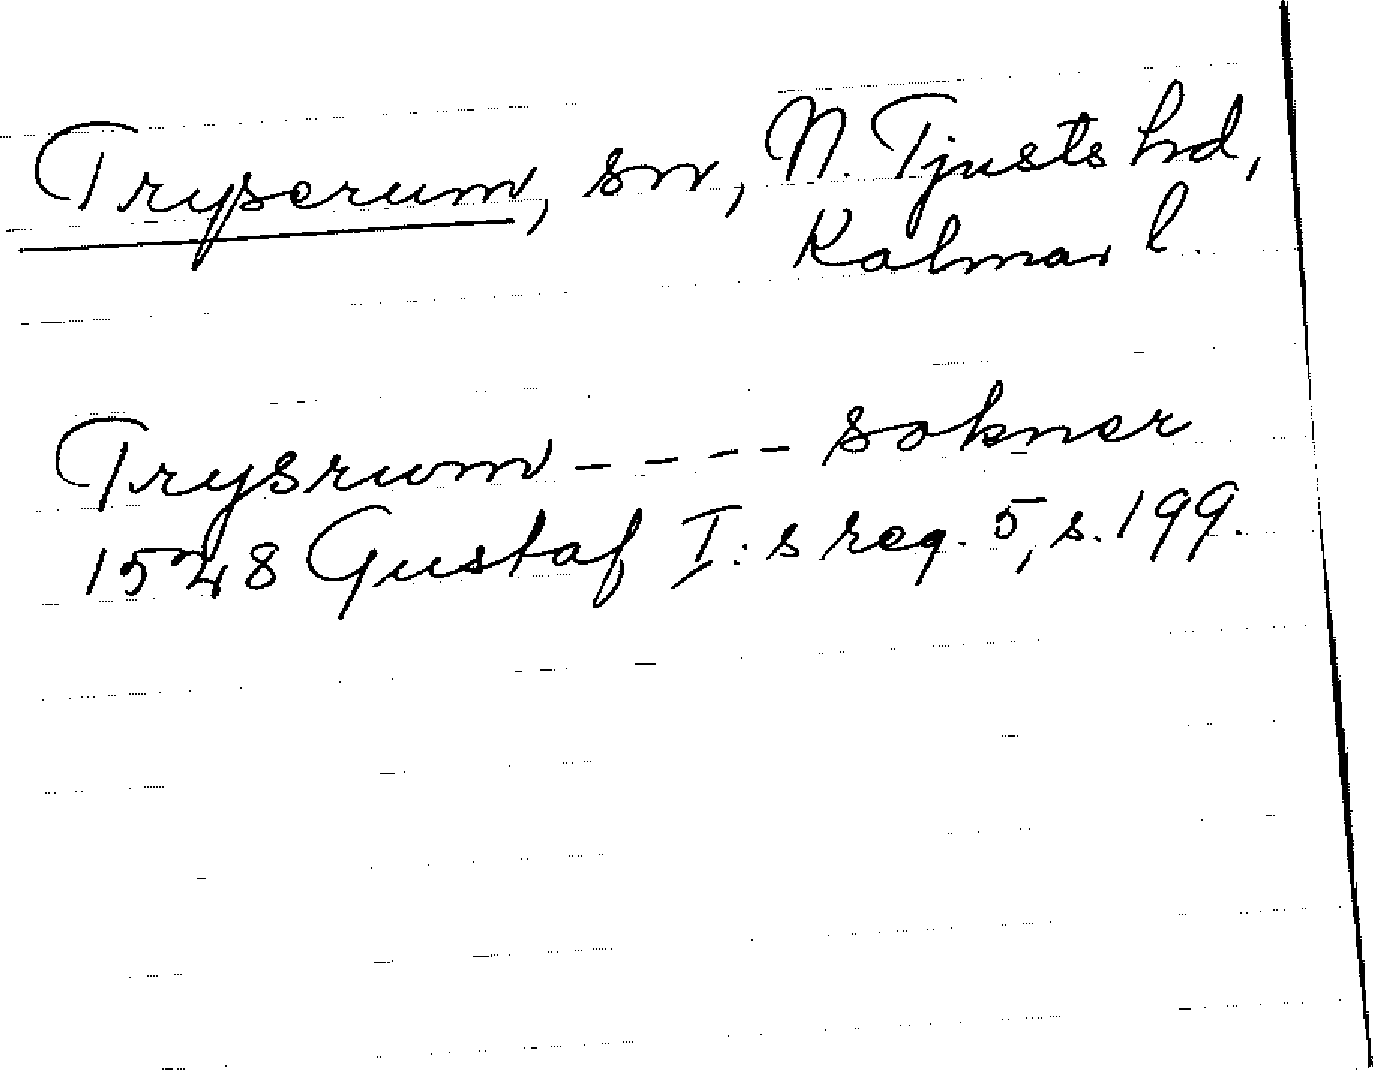 Tryserum, sn, N. Tjusts hd,
Kalmar l.
Trysrwm - - - - sokner
1528 Gustaf I:s reg. 5, s. 199.